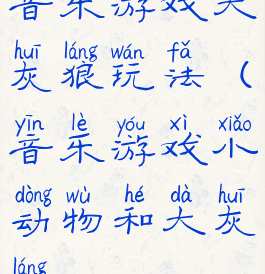 音乐游戏大
huī láng wán fǎ
灰狼玩法（
yīn lè yóu xì xiǎo
音乐游戏小
dòng wù hé dà huī
动物和大灰
láng